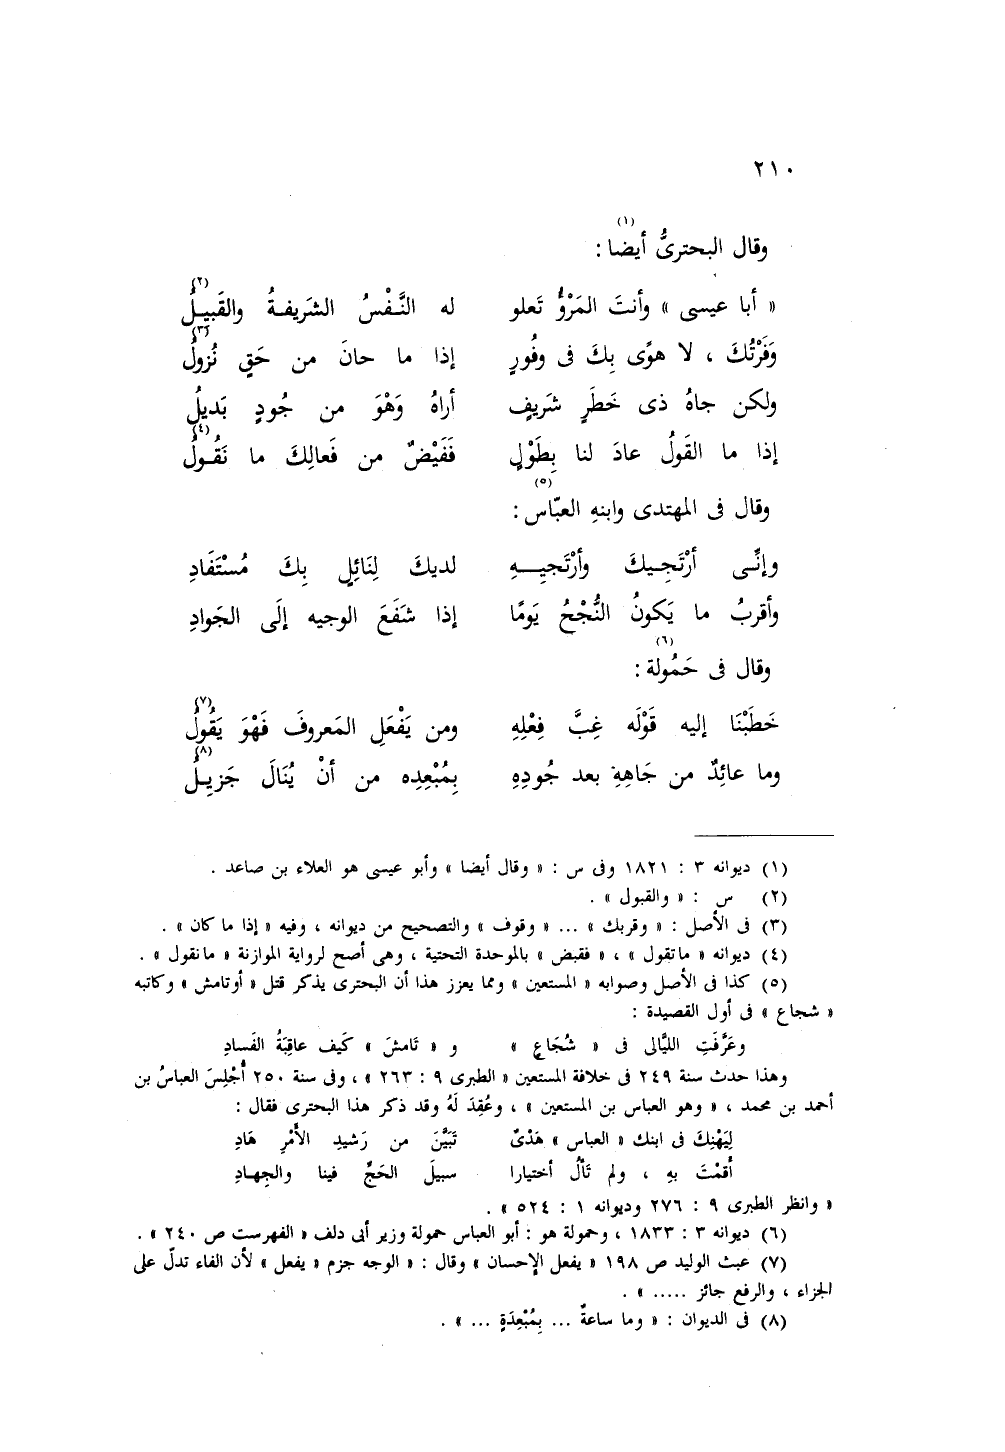 ٢١٠
(١)
وقال البحترىُّ أيضا :
(٢)
« أبا عيسى » وأنتَ المَرْؤُ تَعلو له النَّفْسُ الشَريفةُ والقَبيلُ
(٣)
وَفَرْتُكَ ، لا هوًى بِكَ فى وفُورٍ إذا ما حانَ من حَقٍ نُزولُ
ولكن جاهُ ذى خَطَرٍ شَريفٍ أراهُ وَهْوَ من جُودٍ بَديلُ
(٤)
إذا ما القَولُ عادَ لنا بِطَوْلٍ فَفَيْضٌ من فَعالِكَ ما نَقُولُ
(٥)
وقال فى المهتدى وابنهِ العبّاس :
وإنَّى أرْتَجِيكَ وأرْتَجيِهِ لديكَ لِنَائِلٍ بِكَ مُسْتَفَادِ
وأقربُ ما يَكونُ النُّجْحُ يَومًا إذا شَفَعَ الوجيه إلَى الجَوادِ
(٦)
وقال فى حَمُولة :
(٧)
خَطَبْنَا إليه قَوْلَه غِبَّ فِعْلِهِ ومن يَفْعَلِ المَعروفَ فَهْوَ يَقُولُ
(٨)
وما عائِدٌ من جَاهِهِ بعد جُودِهِ بِمُبْعِدِه من أنْ يُنَالَ جَزيِلُ
(١) ديوانه ٣ : ١٨٢١ وفى س : « وقال أيضا » وأبو عيسى هو العلاء بن صاعد .
(٢) س : « والقبول » .
(٣) فى الأصل : « وقربك » ... « وقوف » والتصحيح من ديوانه ، وفيه « إذا ما كان » .
(٤) ديوانه « ماتقول » ، « فقبض » بالموحدة التحتية ، وهى أصح لرواية الموازنة « مانقول » .
(٥) كذا فى الأصل وصوابه « المستعين » ومما يعزز هذا أن البحترى يذكر قتل « أوتامش » وكاتبه
« شجاع » فى أول القصيدة :
وعَرَّفَتِ الليَّالى فى « شُجَاعٍ » و « تَامشَ » كَيف عاقِبَةُ الفَسادِ
وهذا حدث سنة ٢٤٩ فى خلافة المستعين « الطبرى ٩ : ٢٦٣ » ، وفى سنة ٢٥٠ أُجْلِسَ العباسُ بن
أحمد بن محمد ، « وهو العباس بن المستعين » ، وعُقِدَ لَهُ وقد ذكر هذا البحترى فقال :
لِيَهْنِكَ فى ابنك « العباس » هَدْىٌ تَبَيَّنَ من رَشيدِ الأَمْرِ هَادِ
أَقمْتَ بهِ ، ولم تَألُ أختيارا سبيلَ الحَجِّ فينا والجِهادِ
« وانظر الطبرى ٩ : ٢٧٦ وديوانه ١ : ٥٢٤ » .
(٦) ديوانه ٣ : ١٨٣٣ ، وحمولة هو : أبو العباس حمولة وزير أبى دلف « الفهرست ص ٢٤٠ » .
(٧) عبث الوليد ص ١٩٨ « يفعل الإحسان » وقال : « الوجه جزم « يفعل » لأن الفاء تدلّ على
الجزاء ، والرفع جائز ..... » .
(٨) فى الديوان : « وما ساعةٌ ... بِمُبْعِدَةٍ ... » .